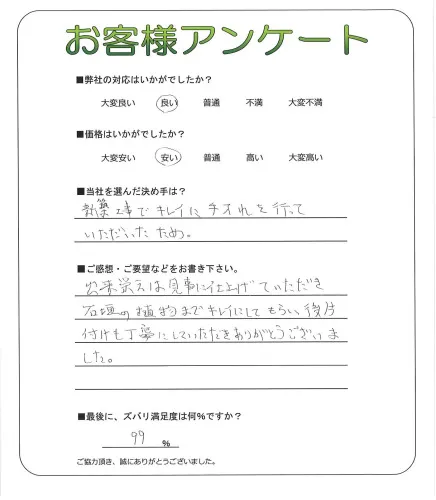 お客様アンケート
■弊社の対応はいかがでしたか？
大変良い 良い 普通 不満 大変不満
■価格はいかがでしたか？
大変安い 安い 普通 高い 大変高い
■当社を選んだ決め手は？
新築工事でキレイに手オれを行って
いただいたため。
■ご感想・ご要望などをお書き下さい。
出来栄えは見事に仕上げていただき
石垣の植物までキレイにしてもらい、後片
付けも丁寧にしていただきありがとうございま
した。
■最後に、ズバリ満足度は何％ですか？
99 ％
ご協力頂き、誠にありがとうございました。